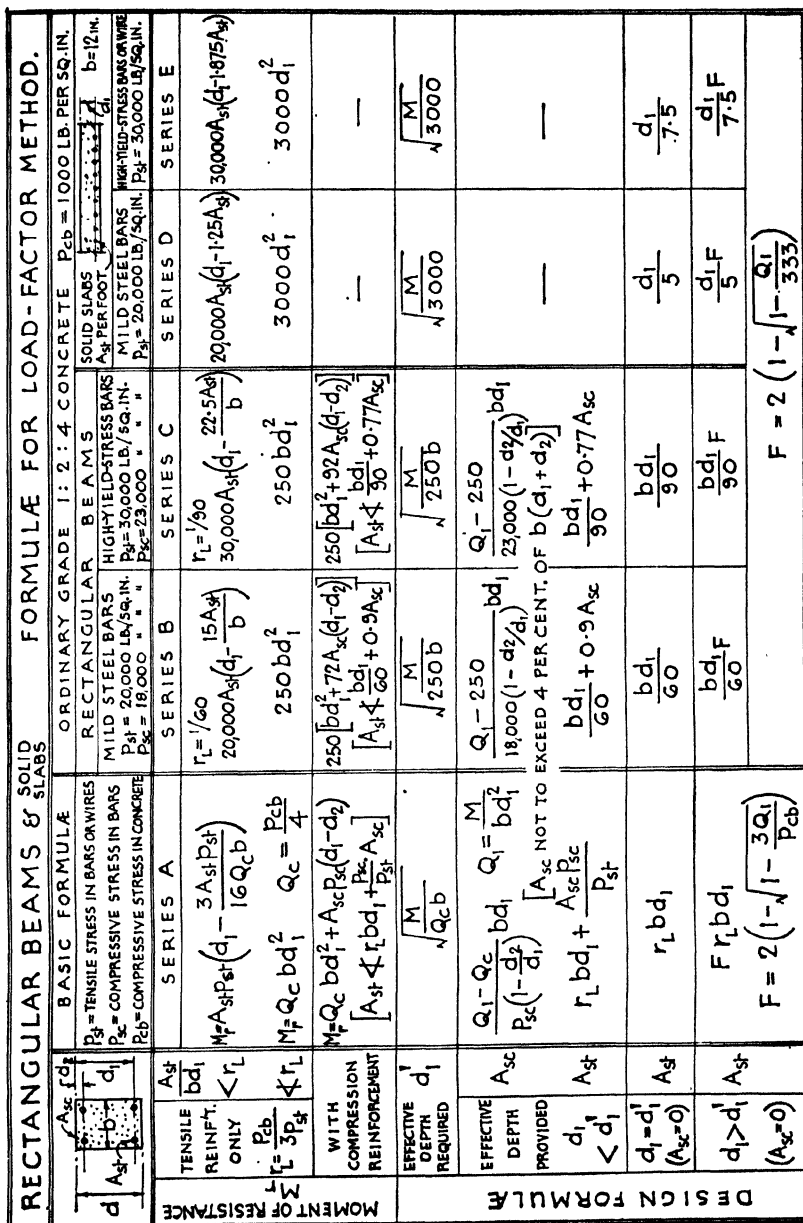 RECTANGULAR BEAMS & SOLID SLABS FORMULÆ FOR LOAD-FACTOR METHOD.
Asc d2
d Ast b d1
BASIC FORMULÆ
Pst = TENSILE STRESS IN BARS OR WIRES
Psc = COMPRESSIVE STRESS IN BARS
Pcb = COMPRESSIVE STRESS IN CONCRETE
ORDINARY GRADE 1:2:4 CONCRETE Pcb = 1000 LB. PER SQ.IN.
RECTANGULAR BEAMS
MILD STEEL BARS
Pst = 20,000 LB/SQ.IN.
Psc = 18,000 " " "
HIGH-YIELD-STRESS BARS
Pst = 30,000 LB./SQ.IN.
Psc = 23,000 " " "
SOLID SLABS
Ast PER FOOT
d1 b = 12 IN.
MILD STEEL BARS
Pst = 20,000 LB/SQ.IN.
HIGH-YIELD-STRESS BARS OR WIRE
Pst = 30,000 LB/SQ.IN.
SERIES A SERIES B SERIES C SERIES D SERIES E
MOMENT OF RESISTANCE Mr
TENSILE REINF'T. ONLY
rL = Pcb/3Pst
Ast/bd1 < rL
Mr = Ast Pst (d1 - 3Ast Pst/16Qc b)
rL = 1/60
20,000Ast(d1 - 15Ast/b)
rL = 1/90
30,000Ast(d1 - 22·5Ast/b)
20,000Ast(d1-1·25Ast)
30,000Ast(d1-1·875Ast)
≮ rL
Mr = Qc bd1² Qc = Pcb/4
250bd1²
250bd1²
3000d1²
3000d1²
WITH COMPRESSION REINFORCEMENT
Mr = Qc bd1² + Asc Psc (d1-d2)
[Ast ≮ rL bd1 + Psc/Pst Asc]
250[bd1²+72Asc(d1-d2)]
[Ast ≮ bd1/60 + 0·9Asc]
250[bd1²+92Asc(d1-d2)]
[Ast ≮ bd1/90 + 0·77Asc]
—
—
DESIGN FORMULÆ
EFFECTIVE DEPTH REQUIRED d1'
√M/Qc b
√M/250b
√M/250b
√M/3000
√M/3000
EFFECTIVE DEPTH PROVIDED
d1 < d1'
Asc
Q1 - Qc/Psc(1 - d2/d1) bd1 Q1 = M/bd1²
Q1 - 250/18,000(1 - d2/d1) bd1
Q1 - 250/23,000(1 - d2/d1) bd1
—
—
[Asc NOT TO EXCEED 4 PER CENT. OF b(d1 + d2)]
Ast
rL bd1 + Asc Psc/Pst
bd1/60 + 0·9Asc
bd1/90 + 0·77Asc
d1 = d1'
(Asc=0)
Ast
rL bd1
bd1/60
bd1/90
d1/5
d1/7·5
d1 > d1'
(Asc=0)
Ast
F rL bd1
bd1/60 F
bd1/90 F
d1/5 F
d1/7·5 F
F = 2(1 - √1 - 3Q1/Pcb)
F = 2(1 - √1 - Q1/333)